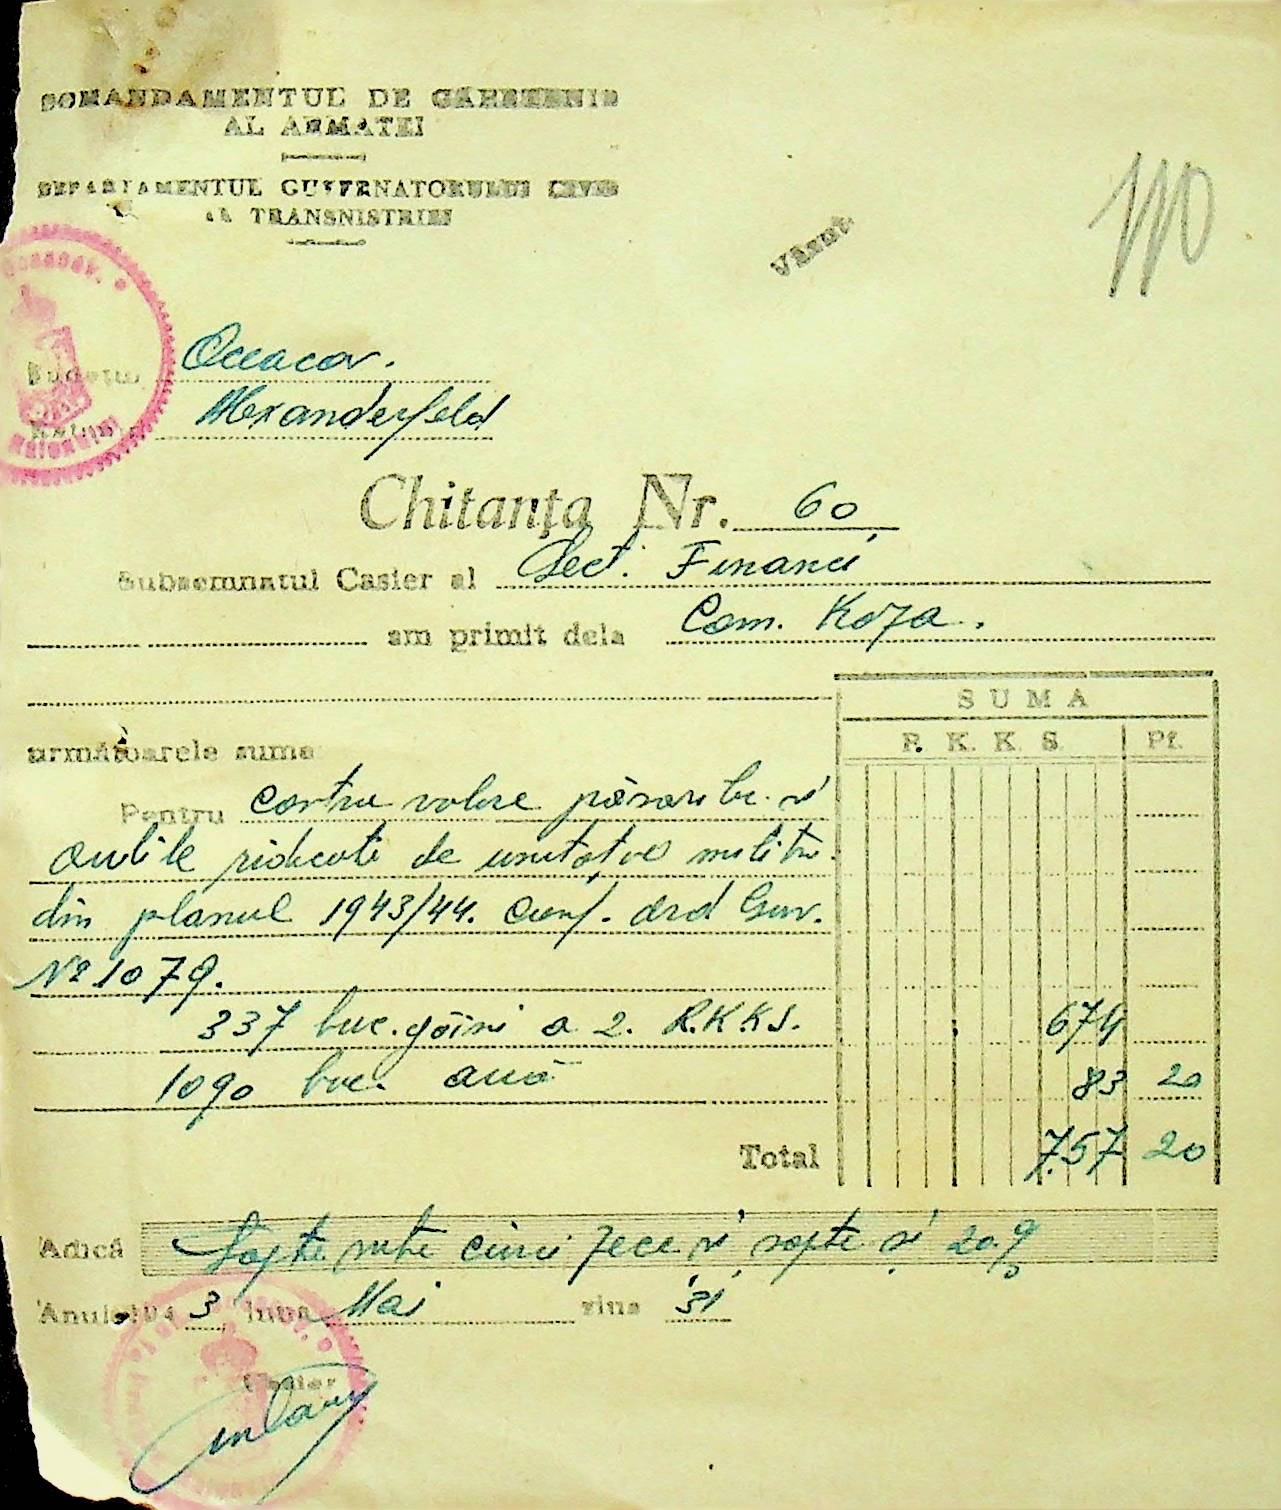 COMANDAMENTUL DE CĂPETENIE
AL ARMATEI
DEPARTAMENTUL GUVERNATORULUI CIVIL
AL TRANSNISTRIEI
Văzut
110
Județul Oceacov.
Raionul Alexanderfeld
Chitanţa Nr. 60
Subsemnatul Casier al Sect. Financi
am primit dela Com. Koza.
SUMA
următoarele sume
R. K. K. S. Pf.
Pentru contra valore păsări lor și
ouăle ridicate de unitatve militre
din planul 1943/44. conf. ord Guv.
Nº 1079.
337 buc. găini a 2. R.K.K.S. 674
1090 buc. auă 83 20
Total 757 20
Adică Șapte sute cinci zece și șapte și 20.
Anul 194 3 luna Mai ziua 31
Casier